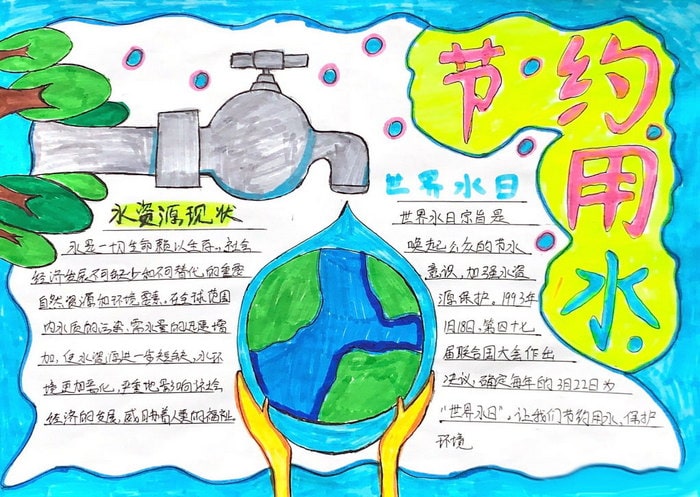 节约用水
水资源现状
水是一切生命赖以生存,社会
经济发展不可缺少和不可替代的重要
自然资源和环境要素,在全球范围
内水质的污染、需水量的迅速增
加,使水资源进一步短缺,水环
境更加恶化,严重地影响社会
经济的发展,威胁着人类的福祉
世界水日
世界水日宗旨是
唤起公众的节水
意识,加强水资
源保护。1993年
1月18日,第四十七
届联合国大会作出
决议,确定每年的3月22日为
"世界水日",让我们节约用水,保护
环境